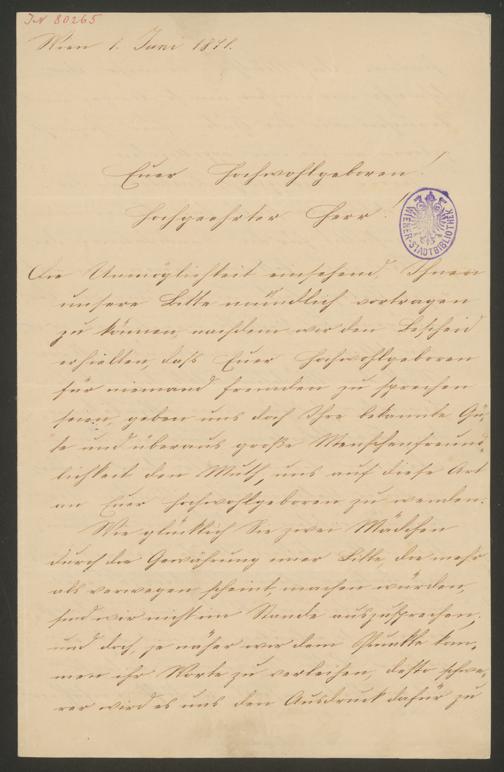 IN 80265
Wien 1. Juni 1871.
Euer Hochwohlgeboren!
Hochgeehrter Herr!
WIENER-STADTBIBLIOTHEK
Die Unmöglichkeit einsehend Ihnen
unsere Bitte mündlich vortragen
zu können, nachdem wir den Bescheid
erhielten, daß Euer Hochwohlgeboren
für niemand Fremden zu sprechen
seien, geben uns doch Ihre bekannte Gü-
te und überaus große Menschenfreund-
lichkeit den Muth, uns auf diese Art
an Euer Hochwohlgeboren zu wenden.
Wie glücklich Sie zwei Mädchen
durch die Gewährung einer Bitte, die mehr
als verwegen scheint, machen würden,
sind wir nicht im Stande auszusprechen,
und doch, je näher wir dem Punkte kom-
men ihr Worte zu verleihen, desto schwe-
rer wird es uns den Ausdruck dafür zu